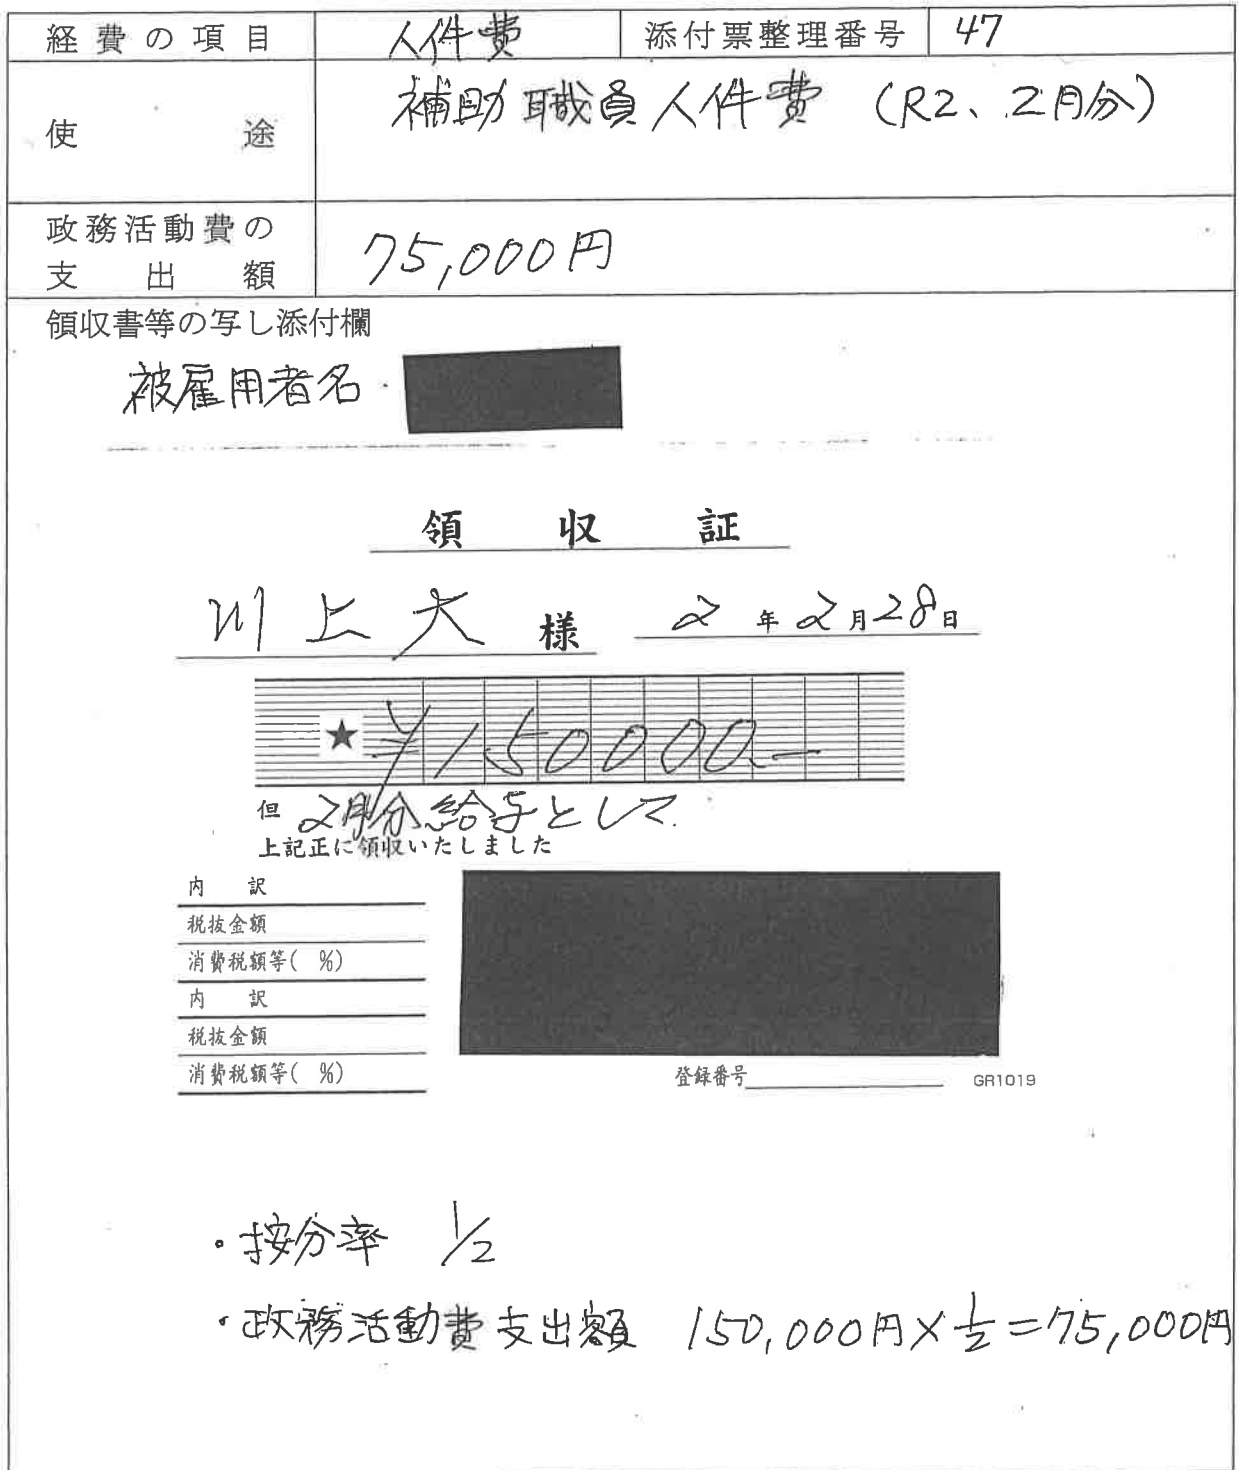 経費の項目 人件費 添付票整理番号 47
使途 補助職員人件費 (R2、2月分)
政務活動費の
支出額 75,000円
領収書等の写し添付欄
被雇用者名
領収証
川上大様 2年2月28日
★ ¥150000.-
但 2月分給与として
上記正に領収いたしました
内訳
税抜金額
消費税額等( %)
内訳
税抜金額
消費税額等( %)
登録番号 GR1019
・按分率 1/2
・政務活動費支出額 150,000円×1/2=75,000円